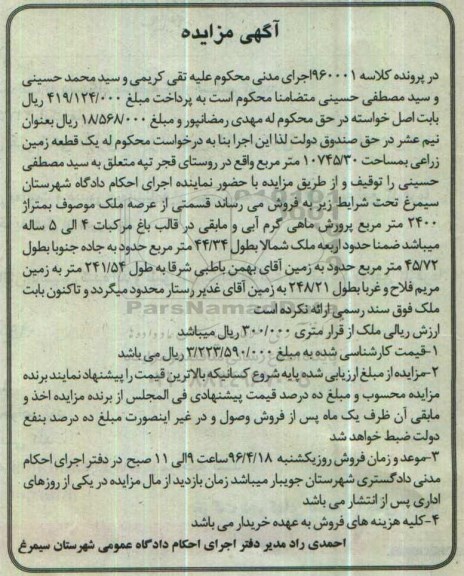 آگهی مزایده
در پرونده کلاسه ۹۶۰۰۰۱اجرای مدنی محکوم علیه تقی کریمی و سید محمد حسینی
و سید مصطفی حسینی متضامنا محکوم است به پرداخت مبلغ ۴۱۹/۱۲۴/۰۰۰ ریال
بابت اصل خواسته در حق محکوم له مهدی رمضانپور و مبلغ ۱۸/۵۶۸/۰۰۰ ریال بعنوان
نیم عشر در حق صندوق دولت لذا این اجرا بنا به درخواست محکوم له یک قطعه زمین
زراعی بمساحت ۱۰۷۴۵/۳۰ متر مربع واقع در روستای قجر تپه متعلق به سید مصطفی
حسینی را توقیف و از طریق مزایده با حضور نماینده اجرای احکام دادگاه شهرستان
سیمرغ تحت شرایط زیر به فروش می رساند قسمتی از عرصه ملک موصوف بمتراژ
۲۴۰۰ متر مربع پرورش ماهی گرم آبی و مابقی در قالب باغ مرکبات ۴ الی ۵ ساله
میباشد ضمنا حدود اربعه ملک شمالا بطول ۴۴/۳۴ متر مربع حدود به جاده جنوبا بطول
۴۵/۷۲ متر مربع حدود به زمین آقای بهمن باطبی شرقا به طول ۲۴۱/۵۴ متر به زمین
مریم فلاح و غربا بطول ۲۴۸/۲۱ به زمین آقای غدیر رستار محدود میگردد و تاکنون بابت
ملک فوق سند رسمی ارائه نکرده است
ارزش ریالی ملک از قرار متری ۳۰۰/۰۰۰ ریال میباشد
۱-قیمت کارشناسی شده به مبلغ ۳/۲۲۳/۵۹۰/۰۰۰ ریال می باشد
۲-مزایده از مبلغ ارزیابی شده پایه شروع کسانیکه بالاترین قیمت را پیشنهاد نمایند برنده
مزایده محسوب و مبلغ ده درصد قیمت پیشنهادی فی المجلس از برنده مزایده اخذ و
مابقی آن ظرف یک ماه پس از فروش وصول و در غیر اینصورت مبلغ ده درصد بنفع
دولت ضبط خواهد شد
۳-موعد و زمان فروش روز یکشنبه ۹۶/۴/۱۸ ساعت ۹ الی ۱۱ صبح در دفتر اجرای احکام
مدنی دادگستری شهرستان جویبار میباشد زمان بازدید از مال مزایده در یکی از روزهای
اداری پس از انتشار می باشد
۴-کلیه هزینه های فروش به عهده خریدار می باشد
احمدی راد مدیر دفتر اجرای احکام دادگاه عمومی شهرستان سیمرغ
ParsNamadData